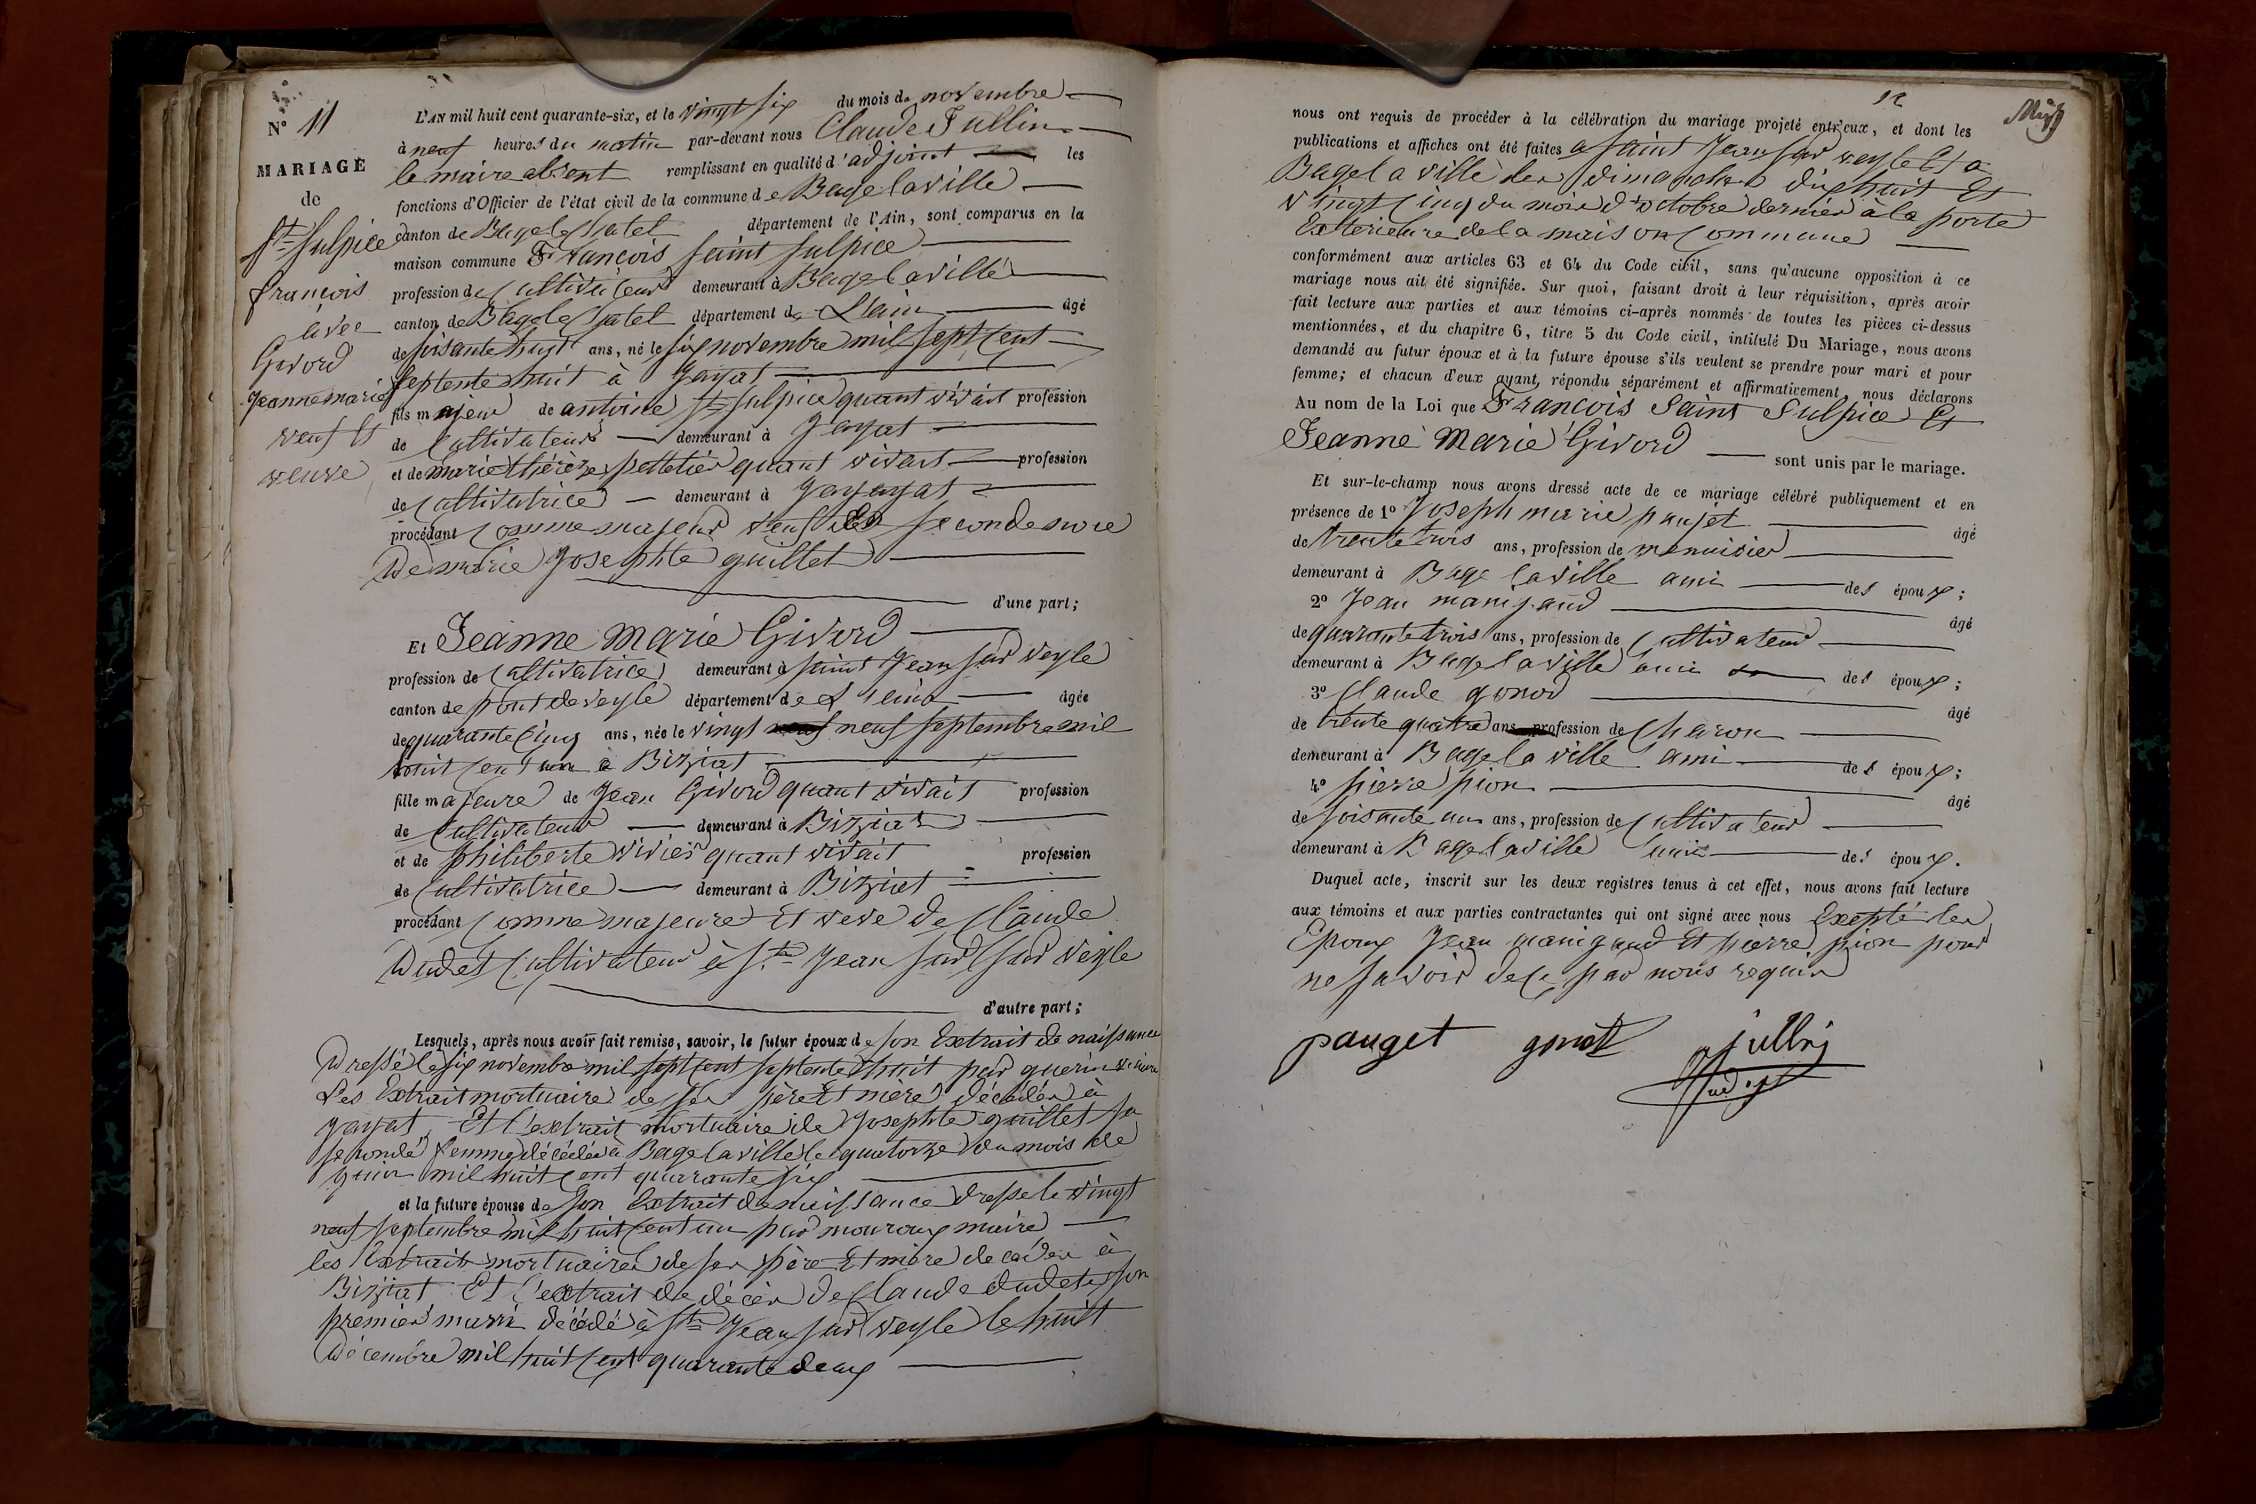 N° 11
MARIAGE
de
St Sulpice
françois
avec
Givord
Jeanne marie
veuf et
veuve
L'AN mil huit cent quarante-six, et le vingt six du mois de novembre
à neuf heures du matin par-devant nous Claude Jullin
le maire absent remplissant en qualité d'adjoint les
fonctions d'Officier de l'état civil de la commune de Bage la ville
canton de Bage le Chatel département de l'Ain, sont comparus en la
maison commune François Saint Sulpice
profession de Cultivateur demeurant à Bage la ville
canton de Bage le Chatel département de L'ain âgé
de soisante huit ans, né le six novembre mil sept cent
septente huit à Jayat
fils majeur de antoine St Sulpice quant vivait profession
de Cultivateur demeurant à Jayat
et de marie thérèze pelletier quant vivait profession
de Cultivatrice demeurant à Jayayat
procédant Comme majeur veuf de seconde nore
De marie Josephte guillet
d'une part;
Et Jeanne Marie Givord
profession de Cultivatrice demeurant à saint Jean sur veyle
canton de pont de veyle département de L'ain âgée
de quarante Cinq ans, née le vingt neuf septembre mil
huit Cent un a Biziat
fille majeure de Jean Givord quant vivait profession
de Cultivateur demeurant à Biziat
et de philiberte vivier quant vivait profession
de Cultivatrice demeurant à Biziat
procédant Comme majeure Et veve de Claude
Dudet Cultivateur à St Jean sur sur veyle
d'autre part;
Lesquels, après nous avoir fait remise, savoir, le futur époux de son Extrait de naissance
Dressé le six novembre mil sept cent septente huit par guerin
Les Extrait mortuaire de ses père Et mère décédés à
Jayat Et l'extrait mortuaire de Josephte guillet sa
seconde femme décédée a Bage la ville le quatorze du mois de
juin mil huit cent quarante six
et la future épouse de son Extrait de naissance dressé le vingt
neuf septembre mil huit cent un par mouroux maire
les Extrait mortuaires de ses père Et mère décédés à
Biziat Et l'extrait de décès de Claude dudet son
premier marri décédé à St Jean sur veyle le huit
Décembre mil huit cent quarante deux
12
nous ont requis de procéder à la célébration du mariage projeté entr'eux, et dont les
publications et affiches ont été faites a saint Jean sur veyle Et a
Bage la ville les dimanches dix huit Et
vingt Cinq du mois d'octobre dernier à la porte
Exterieure de la maison Commune
conformément aux articles 63 et 64 du Code civil, sans qu'aucune opposition à ce
mariage nous ait été signifiée. Sur quoi, faisant droit à leur réquisition, après avoir
fait lecture aux parties et aux témoins ci-après nommés de toutes les pièces ci-dessus
mentionnées, et du chapitre 6, titre 5 du Code civil, intitulé Du Mariage, nous avons
demandé au futur époux et à la future épouse s'ils veulent se prendre pour mari et pour
femme; et chacun d'eux ayant répondu séparément et affirmativement, nous déclarons
Au nom de la Loi que François Saint Sulpice Et
Jeanne Marie Givord sont unis par le mariage.
Et sur-le-champ nous avons dressé acte de ce mariage célébré publiquement et en
présence de 1° Joseph marie paujet âgé
de trente trois ans, profession de menuisier
demeurant à Bage la ville ami des époux;
2° Jean manigaud âgé
de quarante trois ans, profession de Cultivateur
demeurant à Bage la ville ami des époux;
3° Claude gonod âgé
de trente quatre ans profession de Charon
demeurant à Bage la ville ami des époux;
4° pierre pion âgé
de soisante un ans, profession de Cultivateur
demeurant à Bage la ville ami des époux.
Duquel acte, inscrit sur les deux registres tenus à cet effet, nous avons fait lecture
aux témoins et aux parties contractantes qui ont signé avec nous Excepté les
Epoux Jean manigaud Et pierre pion pour
ne savoir de ce par nous requis
pauget gonod jullin